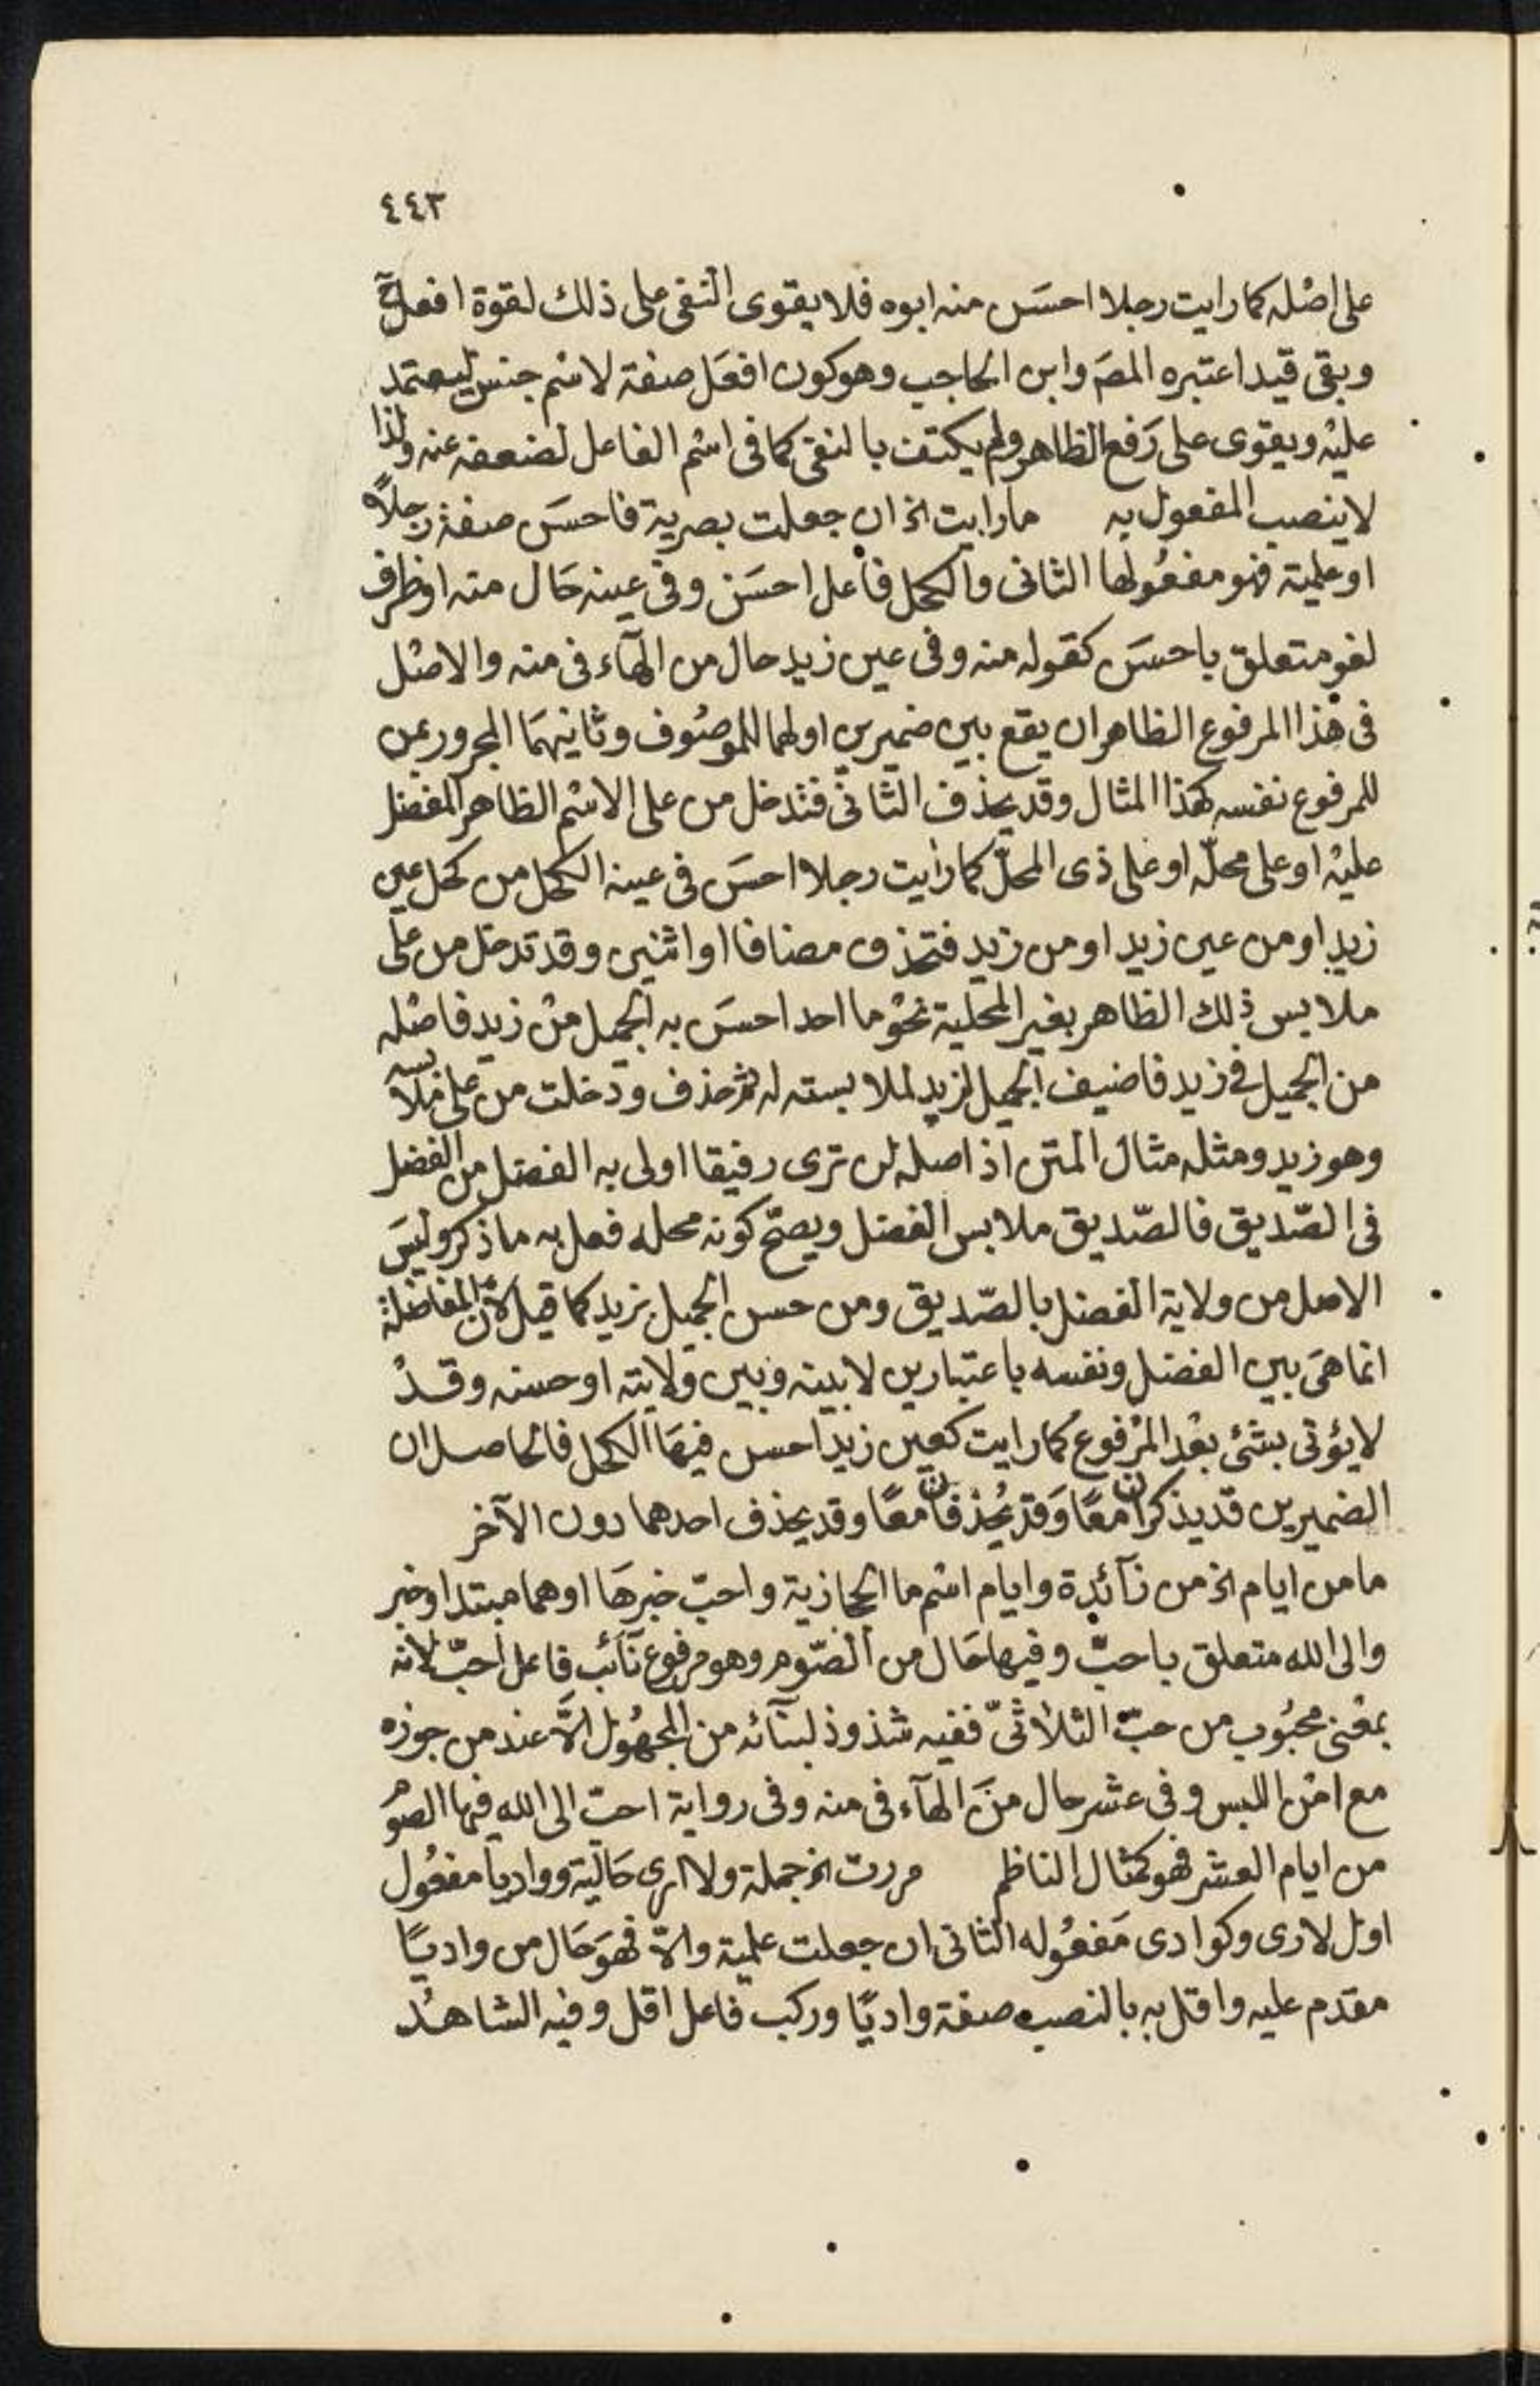 ٤٤٣
على اصله كما رايت رجلا احسن منه ابوه فلا يقوى النفى على ذلك لقوة افعل ح
وبقى قيد اعتبره المصَ وابن الحاجب وهو كون افعَل صفة لاسْم جنس ليعتمد
عليْه ويقوى على رَفع الظاهر ولم يكتف بالنفى كما فى اسْم الفاعل لضعفه عنه ولذا
لا ينصب المفعول به ما رايت الخ ان جعلت بصرية فاحسَن صفة رجلاً
او علمية فهو مفعُولها الثانى والكحل فاعل احسَن وفى عينه حَال منه او ظرف
لغو متعلق باحسَن كقوله منه وفى عين زيد حال من الهآء فى منه والاصْل
فى هٰذا المرفوع الظاهر ان يقع بين ضميرين اولهما للموصُوف وثانيهمَا المجرور بمن
للمرفوع نفسه كهذا المثال وقد يحذف الثانى فتدخل من على الاسْم الظاهر المفضل
عليْه او على محلّه او على ذى المحلّ كما رايت رجلا احسَن فى عينه الكحل من كحل عين
زيد او من عين زيد او من زيد فتحذف مضافا او اثنين وقد تدخل من على
ملابس ذلك الظاهر بغير المحلية نحوْ ما احد احسَن به الجميل منْ زيد فاصْله
من الجميل فى زيد فاضيف الجميل لزيد لملابسته له ثمّ حذف ودخلت من على ملابسه
وهو زيد ومثله مثال المتن اذ اصله لن ترى رفيقا اولى به الفضل من الفضل
فى الصّديق فالصّديق ملابس الفضل ويصحّ كونه محله فعل به ما ذكر وليسَ
الاصل من ولاية الفضل بالصّديق ومن حسن الجميل بزيد كما قيل لانّ المفاضلة
انما هىَ بين الفضل ونفسه باعتبارين لا بينه وبين ولايته او حسنه وقدْ
لا يؤتى بشئ بعْد المرْفوع كما رايت كعين زيد احسن فيهَا الكحل فالحاصل ان
الضميرين قد يذكران معًا وَقد يُحذفان معًا وقد يحذف احدهما دون الآخر
ما من ايام الخ من زآئدة وايام اسْم ما الحجازية واحبّ خبرهَا او هما مبتدا وخبر
والى الله متعلق باحبّ وفيها حَال من الصّوم وهو مرفوع نآئب فاعل احبّ لانه
بمعْنى محبُوب من حبّ الثلاثىّ ففيه شذوذ لبنآئه من المجهُول الاّ عند من جوزه
مع امْن اللبس وفى عشر حال منَ الهآء فى منه وفى رواية احبّ الى الله فيها الصّوْم
من ايام العشر فهو كمثال الناظم مررت الخ جملة ولا ارى حَالّية وواديا مفعُول
اول لارى وكوادى مَفعُوله الثانى ان جعلت علمية والاّ فهوَ حَال من واديًا
مقدم عليه واقل به بالنصب صفة واديًا وركب فاعل اقل وفيه الشاهدْ